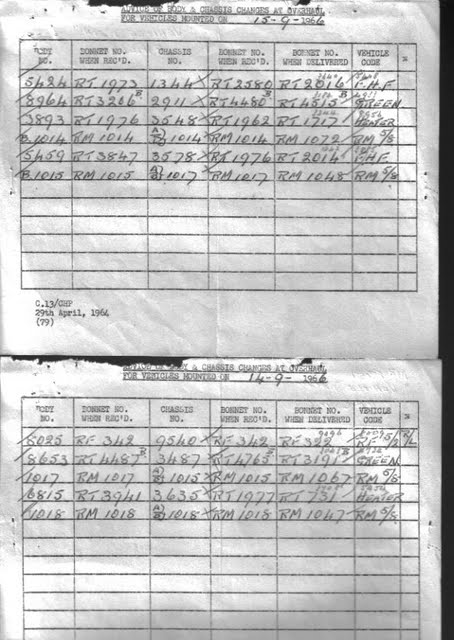 ADVICE OF BODY & CHASSIS CHANGES AT OVERHAUL
FOR VEHICLES MOUNTED ON 15-9-1966
BODY NO. BONNET NO. WHEN REC'D. CHASSIS NO. BONNET NO. WHEN MOUNTED BONNET NO. WHEN DELIVERED VEHICLE CODE
5424 RT 1973 1344 RT 2580 RT 2016 F.H.F
8964 RT 3206 B 2911 RT 4480 B RT 4515 B GREEN
3893 RT 1976 3548 RT 1962 RT 1717 HEATER
B.1014 RM 1014 1014 RM 1014 RM 1072 RM 5/8
5459 RT 3847 3578 RT 1976 RT 2014 F.H.F
B.1015 RM 1015 1017 RM 1017 RM 1048 RM 5/8
C.13/CHP
29th April, 1964
(79)
ADVICE OF BODY & CHASSIS CHANGES AT OVERHAUL
FOR VEHICLES MOUNTED ON 14-9-1966
BODY NO. BONNET NO. WHEN REC'D. CHASSIS NO. BONNET NO. WHEN MOUNTED BONNET NO. WHEN DELIVERED VEHICLE CODE
8025 RF 342 9540 RF 342 RF 322
8653 RT 4487 B 3487 RT 4765 B RT 3191 B GREEN
1017 RM 1017 1015 RM 1015 RM 1067 RM 5/8
6815 RT 3941 3635 RT 1977 RT 731 HEATER
1018 RM 1018 1018 RM 1018 RM 1047 RM 5/8